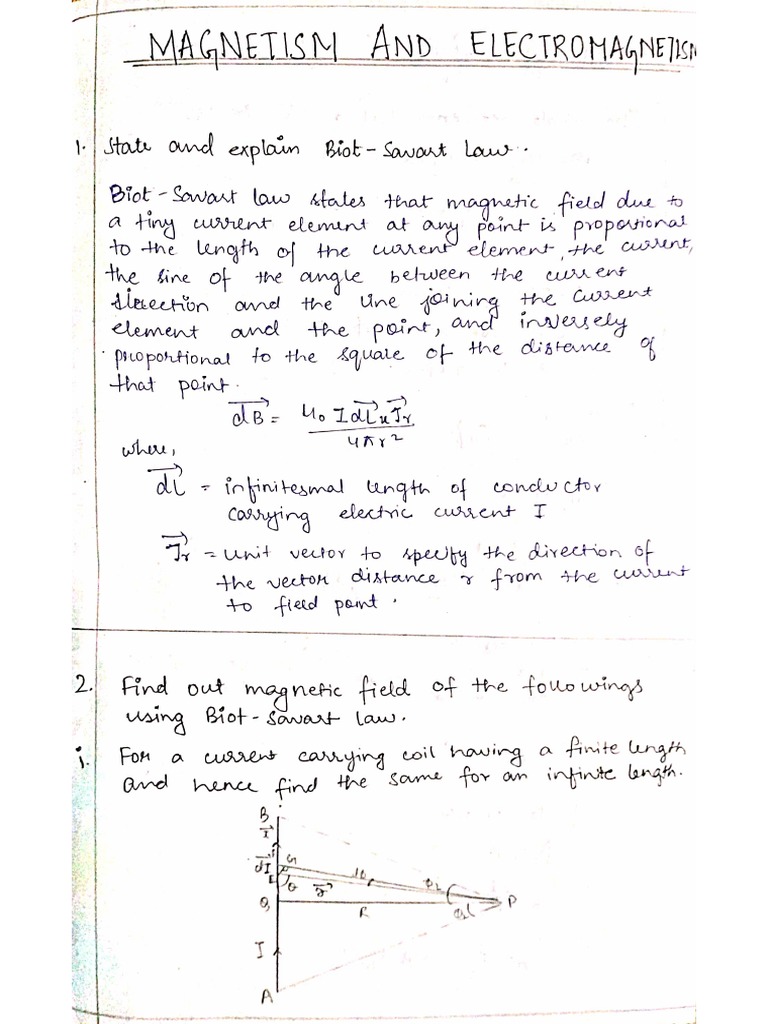 MAGNETISM AND ELECTROMAGNETISM
1. State and explain Biot-Savart Law.
Biot-Savart law states that magnetic field due to
a tiny current element at any point is proportional
to the length of the current element, the current,
the sine of the angle between the current
direction and the line joining the current
element and the point, and inversely
proportional to the square of the distance of
that point.
dB = μ₀ Idl x Jr
4πr²
where,
dl = infinitesmal length of conductor
carrying electric current I
Jr = unit vector to specify the direction of
the vector distance r from the current
to field point.
2. Find out magnetic field of the followings
using Biot-Savart law.
i. For a current carrying coil having a finite length
and hence find the same for an infinite length.
B
I
dI G
E θ r
R P
I
A